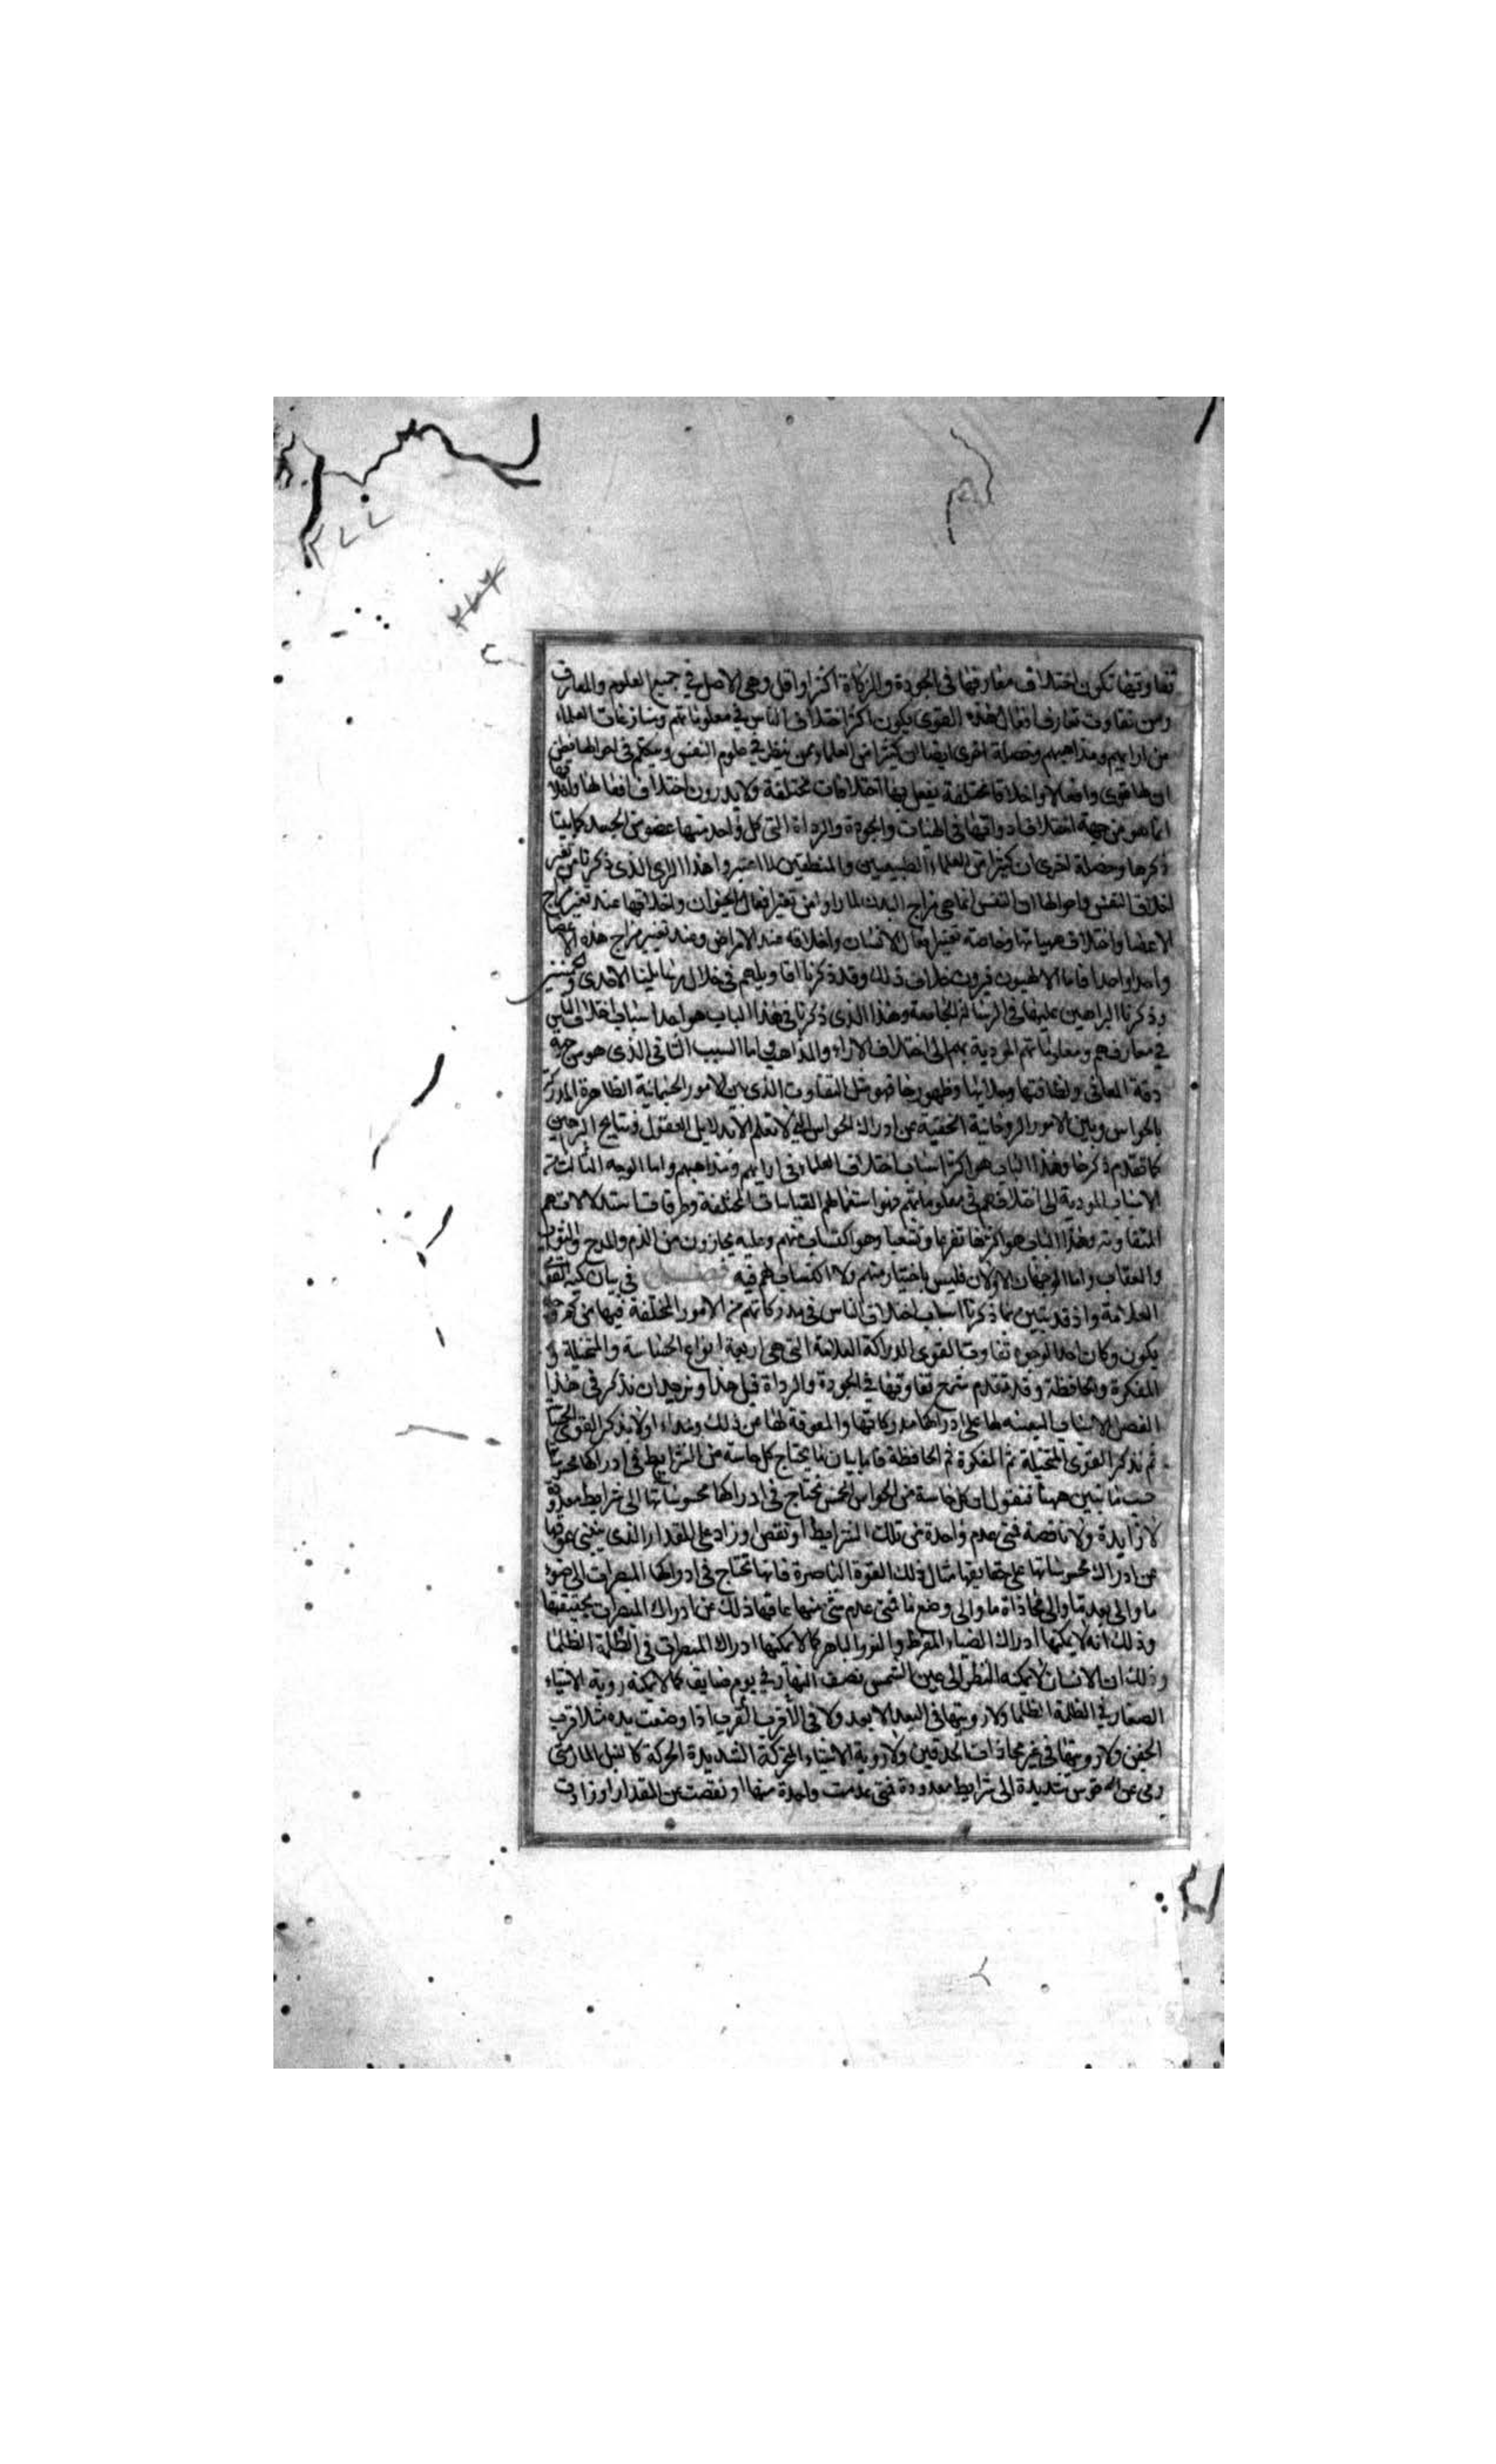 تفاوتها تكون اختلاف معارفها في الجودة والرداة اكثر او اقل وهي الاصل في جميع العلوم والمعارف
ومن تفاوت تعارف افعال هذه القوى يكون اكثر اختلاف الناس في معلوماتهم ومنازعات العلماء
من ارايهم ومذاهبهم وخصلة اخرى ايضا ان كثيرا من العلماء ممن ينظر في علوم النفس ويتكلم في احوالها فظن
ان لها قوى وافعالا واخلاقا مختلفة يفعل بها اختلافات مختلفة ولا يدرون اختلاف افعالها واخلاقها
انما هو من جهة اختلاف ادواتها في الهيئات والجودة والرداة التي كل واحد منها عضو من الجسد كما بينا
ذكرها وخصلة اخرى ان كثيرا من العلماء الطبيعيين والمنطقيين لما اعتبروا هذا الراي الذي ذكرنا من تغير
اخلاق النفس واحوالها ان النفس انما هي مزاج البدن لما راوا من تغير افعال الحيوان واخلاقها عند تغير مزاج
الاعضا واختلاف هيياتها وخاصة تغير افعال الانسان واخلاقه عند الامراض وعند تغيير مزاج هذه الاعضا
واحدا واحدا فاما الالهيون فيرون خلاف ذلك وقد ذكرنا اقاويلهم في خلال رسايلنا الاحدى والخمسين
وذكرنا البراهين عليها في الرسالة الجامعة وهذا الذي ذكرنا في هذا الباب هو احد اسباب اختلاف الناس
في معارفهم ومعلوماتهم المودية بهم الى اختلاف الاراء والمذاهب اما السبب الثاني الذي هو من جهة
دقة المعاني ولطافتها وجلائها وظهورها فهو مثل التفاوت الذي بين الامور الجسمانية الظاهرة المدركة
بالحواس وبين الامور الروحانية الخفية عن ادراك الحواس التي لا تعلم الا بدلايل العقول ونتايج البراهين
كما تقدم ذكرها وهذا الباب هو اكثر اسباب اختلاف العلماء في ارايهم ومذاهبهم واما الوجه الثالث من
الاسباب المودية الى اختلافهم في معلوماتهم فهو استعمالهم القياسات المختلفة وطرقات استدلالاتهم
المتفاوتة وهذا الباب هو اكثرها تفرعا وتشعبا وهو اكتساب منهم وعليه يجازون من الذم والمدح والثواب
والعقاب واما الوجهان الاولان فليس باختيار منهم ولا اكتساب لهم فيه فصل في بيان كمية القوى
العلامة واذ قد تبين مما ذكرنا اسباب اختلاف الناس في مدركاتهم من الامور المختلفة فيها من كم وجه
يكون وكان احد الوجوه تفاوت القوى الدراكة العلامة التي هي اربعة انواع الحساسة والمتخيلة و
المفكرة والحافظة وقد تقدم شرح تفاوتها في الجودة والرداة قبل هذا ونريد ان نذكر في هذا
الفصل الاسباب المعينة لها على ادراكها مدركاتها والمعوقة لها عن ذلك ونبدا اولا بذكر القوى الحساسة
ثم نذكر القوى المتخيلة ثم المفكرة ثم الحافظة فاما بيان ما يحتاج كل حاسة من الشرايط في ادراكها محسوساتها
حسب ما نبين ههنا فنقول ان كل حاسة من الحواس الخمس تحتاج في ادراكها محسوساتها الى شرايط معدودة
لا زايدة ولا ناقصة فمتى عدم واحدة من تلك الشرايط او نقص او زاد على المقدار الذي ينبغي عوقها
عن ادراك محسوساتها على حقايقها مثال ذلك القوة الباصرة فانها تحتاج في ادراكها المبصرات الى ضوء
ما والى بعد ما والى محاذاة ما والى وضع ما فمتى عدم شي منها عاقها ذلك عن ادراك المبصرات بحقيقتها
وذلك انه لا يمكنها ادراك الضياء المفرط والنور الباهر كما لا يمكنها ادراك المبصرات في الظلمة الظلما
وذلك ان الانسان لا يمكنه النظر الى عين الشمس نصف النهار في يوم صايف كما لا يمكنه روية الاشياء
الصغار في الظلمة الظلما ولا رويتها في البعد الابعد ولا في الاقرب القرب اذا وضعت يده مثلا قرب
الجفن ولا رويتها في غير محاذات الحدقتين ولا روية الاشياء المتحركة الشديدة الحركة كالنبل المار متى
رمي عن قوس شديدة الى شرايط معدودة فمتى عدمت واحدة منها او نقصت عن المقدار او زادت